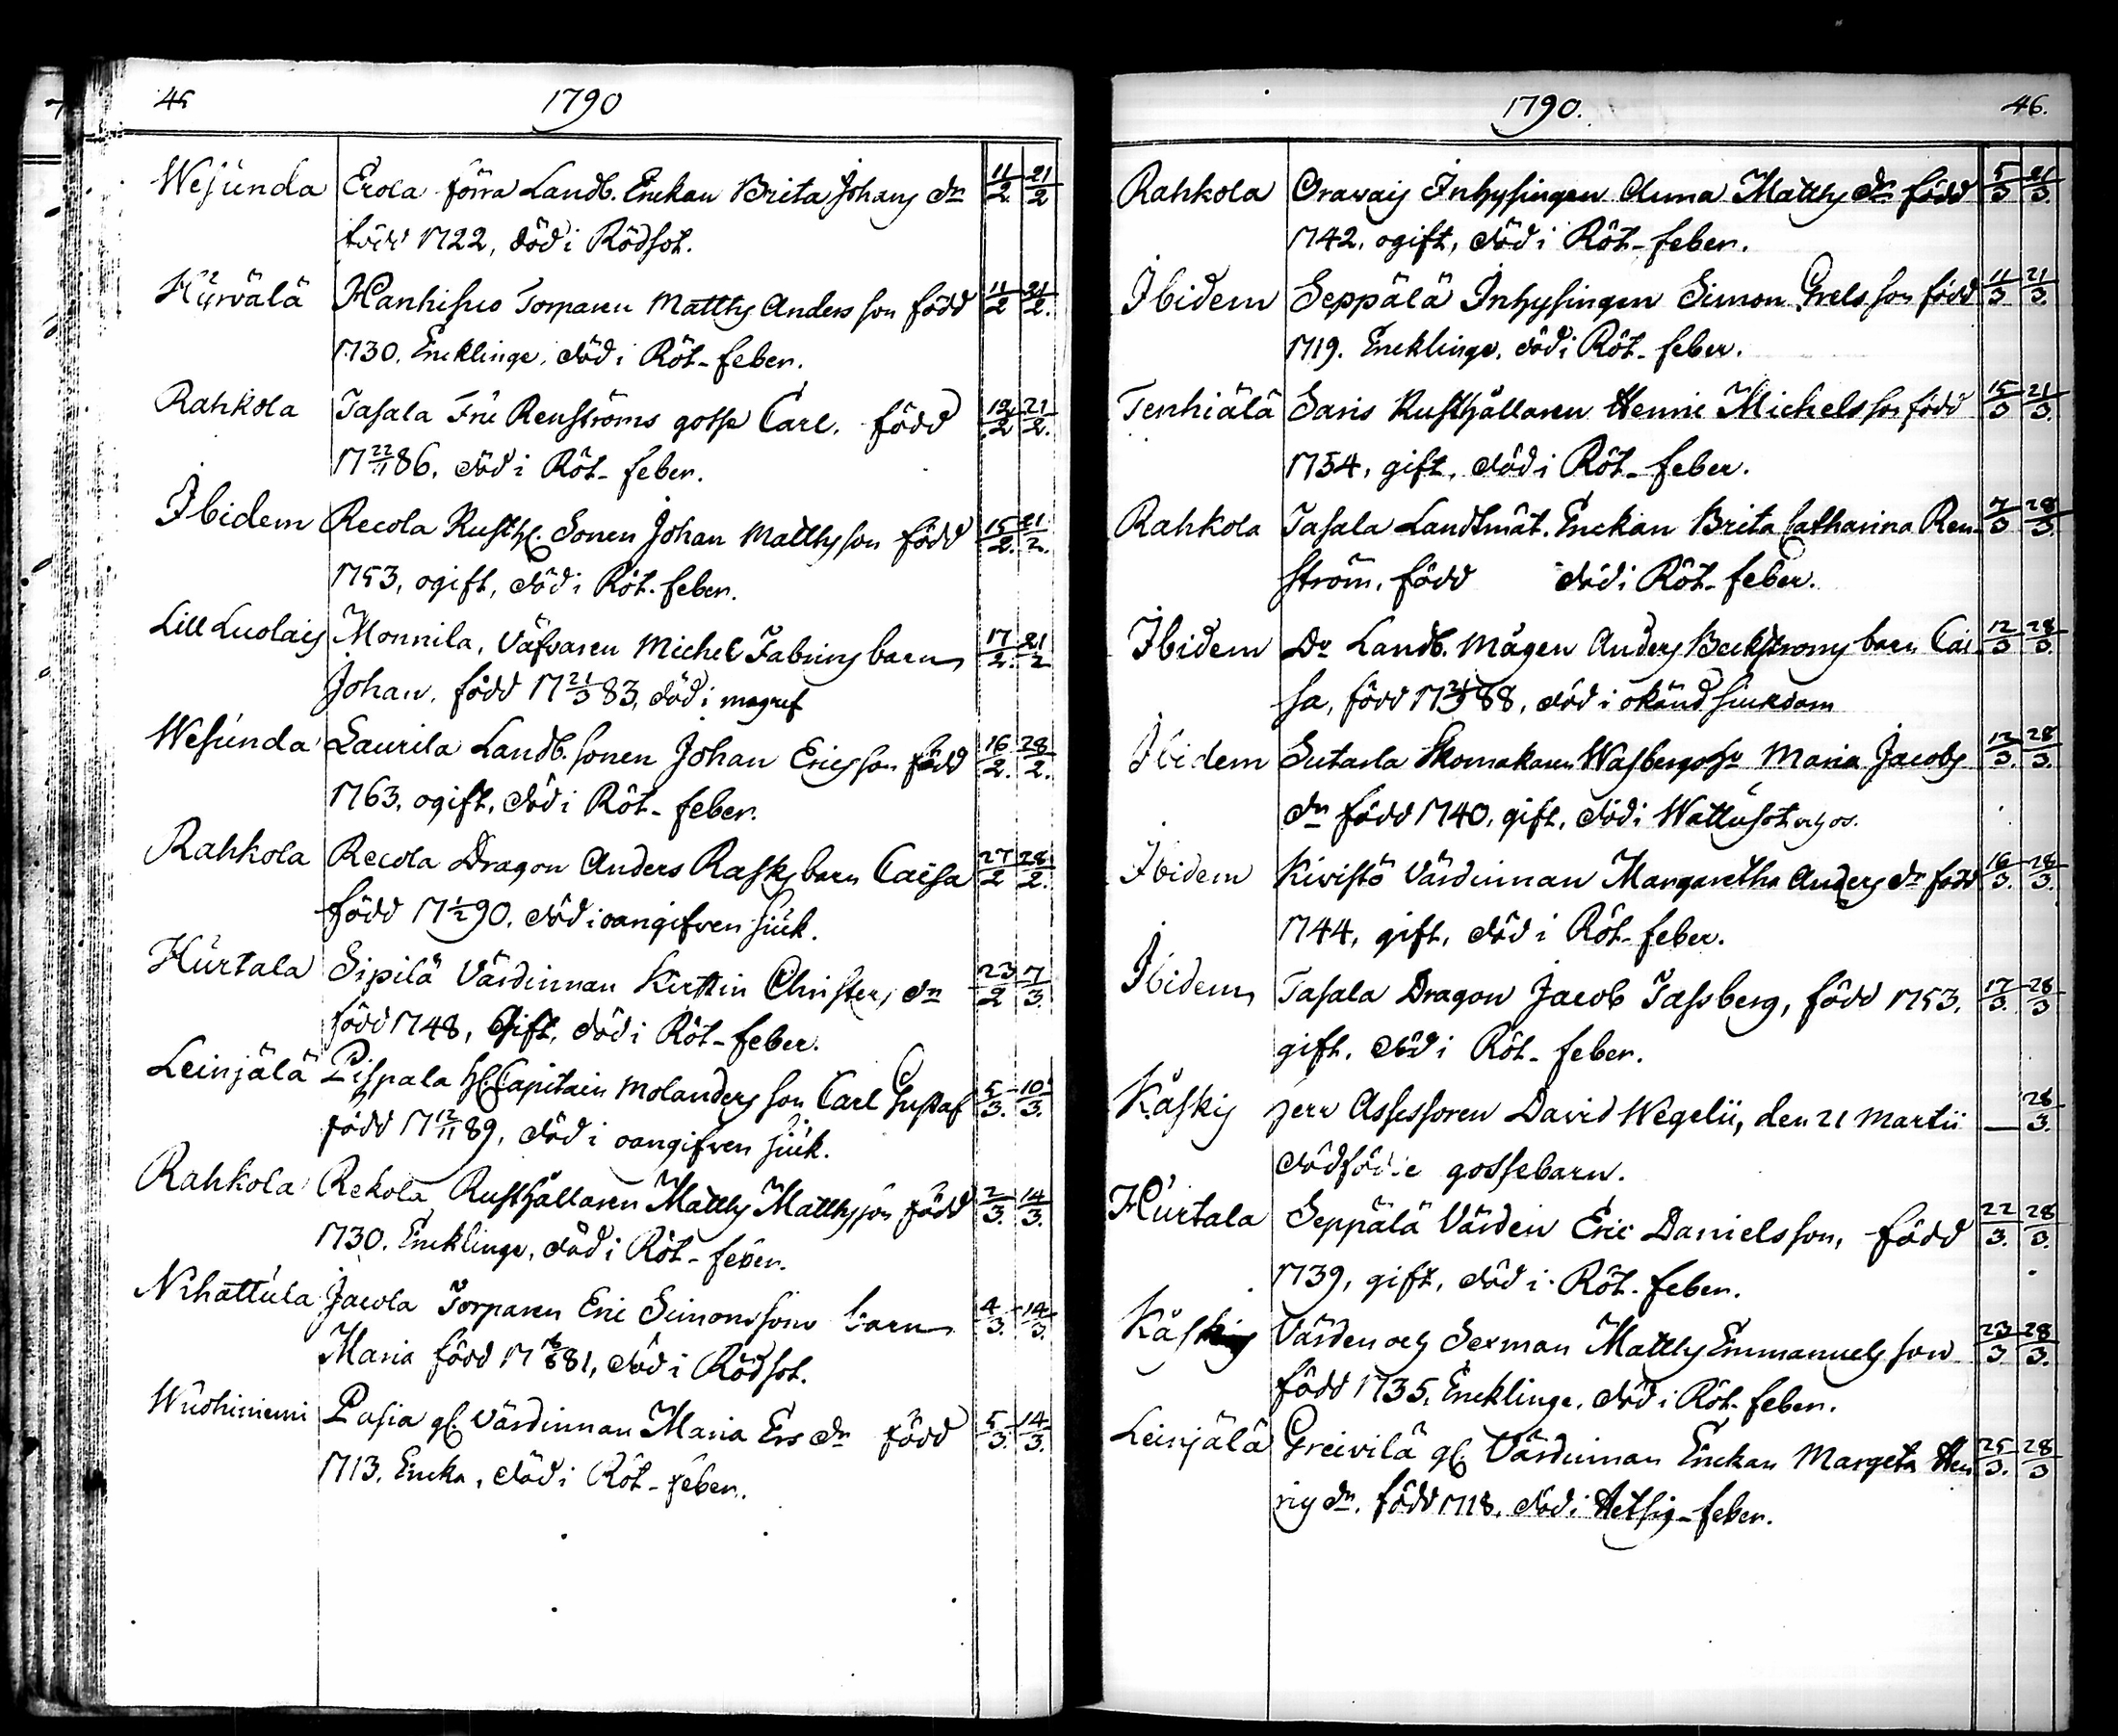 45 1790
Wesunda Erola förra Landb. Enckan Brita Johans dr 11/2 21/2
född 1722, död i Rödsot.
Hyrvälä Hanhisuo Torparen Matths Andersson född 11/2 21/2.
1730. Encklinge, död i Röt-feber.
Rahkola Tasala Fru Renströms gosse Carl. född 12/2 21/2.
17 22/11 86, död i Röt-feber.
Ibidem Recola Rusth. Sonen Johan Matthsson född 15/2. 21/2.
1753, ogift, död i Röt-feber.
Lill Luolais Monnila, Väfvaren Michel barn 17/2. 21/2
Johan, född 17 21/3 83, död i magref
Wesunda Laurila Landb. sonen Johan Ericsson född 16/2. 28/2.
1763, ogift, död i Röt-feber.
Rahkola Recola Dragon Anders Rasks barn Caisa 27/2 28/2.
född 17 1/2 90. död i oangifven siuk.
Hurtala Sipilä Värdinnan Kirstin Christers dr 23/2 7/3.
född 1748, Gift, död i Röt-feber.
Leinjälä Pispala H. Capitain Molanders son Carl Gustaf 5/3. 10/3.
född 17 12/11 89, död i oangifven siuk.
Rahkola Rekola Rusthållaren Matths Matthsson född 2/3. 14/3.
1730. Encklinge, död i Röt-feber.
Nihattula Jacola Torparen Eric Simonssons barn 4/3. 14/3.
Maria född 17 81, död i Rödsot.
Wuohiniemi Pasia gl. Värdinnan Maria Ers dr född 5/3. 14/3.
1713. Encka, död i Röt-feber.
1790. 46.
Rahkola Orawais Inhysingen Anna Matths dr född 5/3 21/3.
1742, ogift, död i Röt-feber.
Ibidem Seppälä Inhysingen Simon Grelsson född 11/3 21/3.
1719. Encklinge, död i Röt-feber.
Tenhiälä Saris Rusthållaren Henric Michelsson född 15/3 21/3.
1754, gift, död i Röt-feber.
Rahkola Tasala Landtmät. Enckan Brita Catharina Ren- 7/3 28/3.
ström, född död i Röt-feber.
Ibidem Do Landb. Mågen Anders Beckströms barn Cai- 12/3 28/3.
sa, född 17 88, död i okänd siukdom
Ibidem Sutarla Skomakaren Wasbergs Maria Jacobs 12/3. 28/3.
dr född 1740, gift, död i Wattusot
Ibidem Kivistö Värdinnan Margaretha Anders dr född 16/3. 28/3.
1744, gift, död i Röt-feber.
Ibidem Tasala Dragon Jacob Tassberg, född 1753, 17/3. 28/3
gift, död i Röt-feber.
Kåskis Herr Assessoren David Wegelii, den 21 Martii — 28/3.
dödfödde gossebarn.
Hurtala Seppälä Värden Eric Danielsson, född 22/3. 28/3.
1739, gift, död i Röt-feber.
Kåskis Värden och Sexman Matths Emmanuelsson 23/3 28/3.
född 1735, Encklinge, död i Röt-feber.
Leinjälä Greivilä gl. Värdinnan Enckan Margeta Hen 25/3. 28/3
rics dr. född 1718, död i Hetsig-feber.